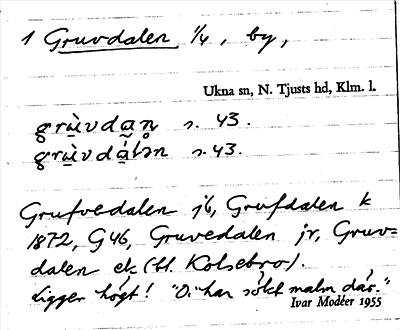 1 Gruvdalen 1/4, by,
Ukna sn, N. Tjusts hd, Klm. l.
grùvdan s. 43.
grùvdálən s. 43.
Grufvedalen jb, Grufdalen k
1872, G46, Gruvedalen jr, Gruv-
dalen ek (bl. Kolsebro).
Ligger högt! "De har sökt malm där."
Ivar Modéer 1955